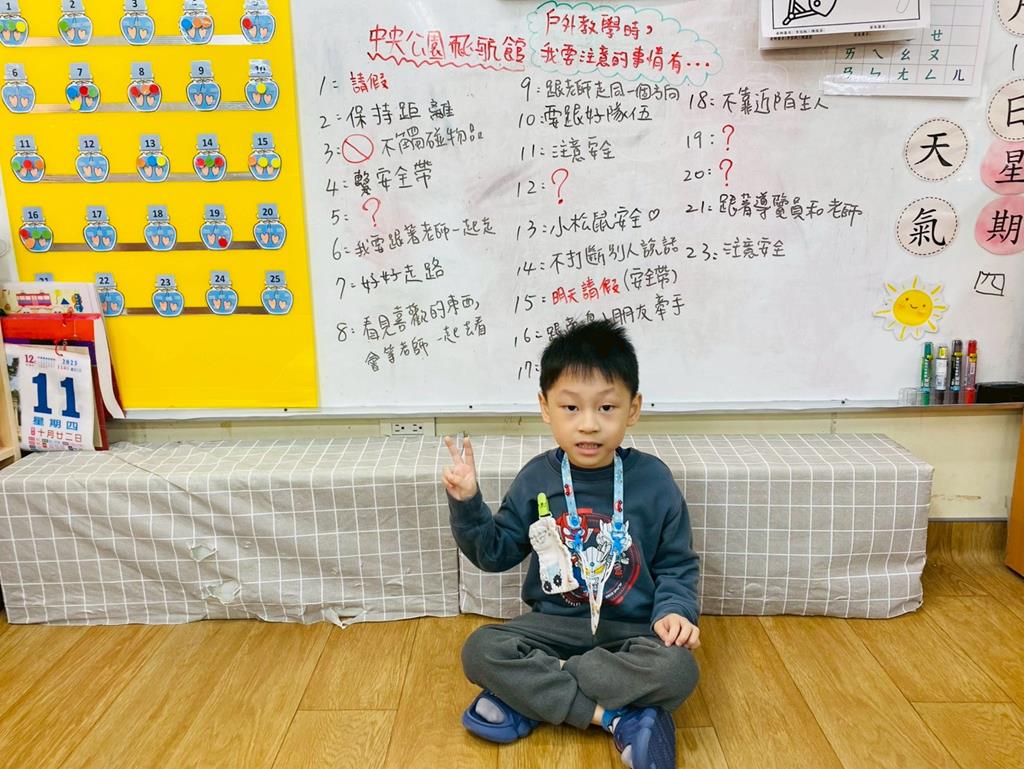 中央公園私航館
戶外教學時,
我要注意的事情有...
1: 請假
2: 保持距離
3: 不觸碰物品
4: 繫安全帶
5: ?
6: 我要跟著老師一起走
7: 好好走路
8: 看見喜歡的東西,
會等老師一起去看
9: 跟老師走同一個方向
10: 要跟好隊伍
11: 注意安全
12: ?
13: 小松鼠安全♡
14: 不打斷別人說話
15: 明天請假(安全帶)
16: 跟著
朋友牽手
17:
18: 不靠近陌生人
19: ?
20: ?
21: 跟著導覽員和老師
23: 注意安全
1 2 3 4 5
6 7 8 9 10
11 12 13 14 15
16 17 18 19 20
21 22 23 24 25
12
2025
11
星期四
十月廿二日
ㄝ
ㄞ ㄟ ㄠ ㄡ
ㄢ ㄣ ㄤ ㄥ ㄦ
天
氣
月
日
星
期
四